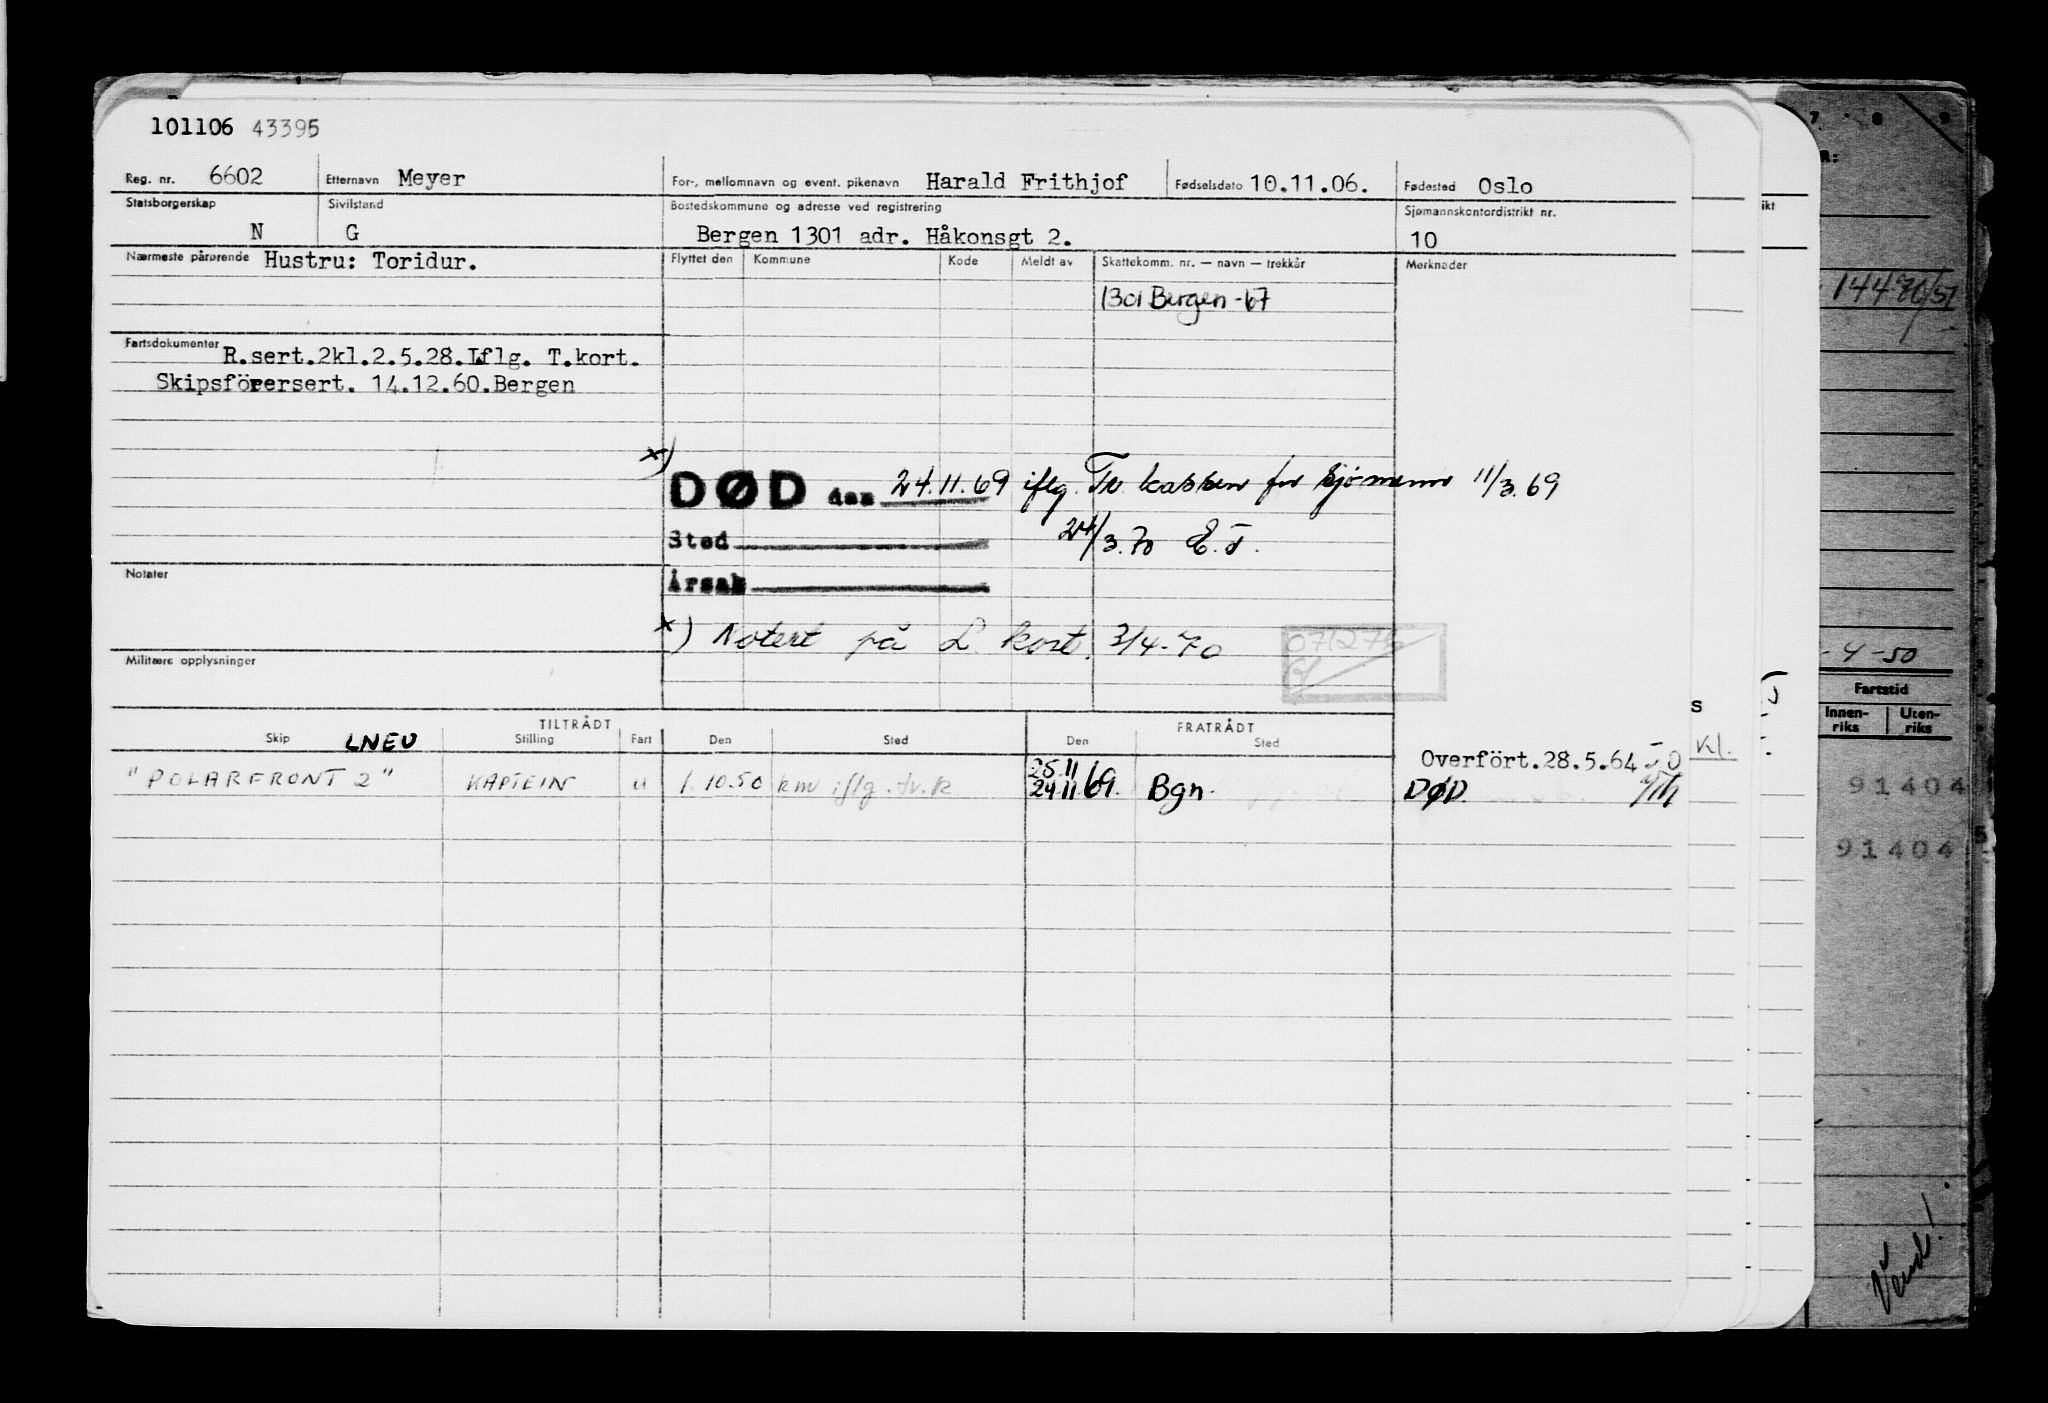 101106 43395
Reg. nr. 6602 Etternavn Meyer For-, mellomnavn og event. pikenavn Harald Frithjof Fødselsdato 10.11.06. Fødested Oslo
Statsborgerskap N Sivilstand G Bostedskommune og adresse ved registrering Sjømannskontordistrikt nr.
Bergen 1301 adr. Håkonsgt 2. 10
Nærmeste pårørende Hustru: Toridur. Flyttet den Kommune Kode Meldt av Skattekomm. nr. — navn — trekkår Merknader
1301 Bergen -67
Fartsdokumenter R.sert.2kl.2.5.28.Iflg. T.kort.
Skipsförersert. 14.12.60.Bergen
x)
DØD den 24.11.69 iflg. Tr. kassen for sjømenn 11/3.69
Sted 24/3.70 E.T.
Notater Årsak
x) Notert på L. kort. 3/4-70
Militære opplysninger
TILTRÅDT FRATRÅDT
Skip LNEU Stilling Fart Den Sted Den Sted
Overfört.28.5.64
"POLARFRONT 2" KAPTEIN u 1.10.50 km iflg. tr.k 25.11 24.11.69. Bgn. DØD.
ikt
144
- 4 -50
Fartstid
Innen-riks Uten-riks
s
Kl.
91404
91404
Vend!